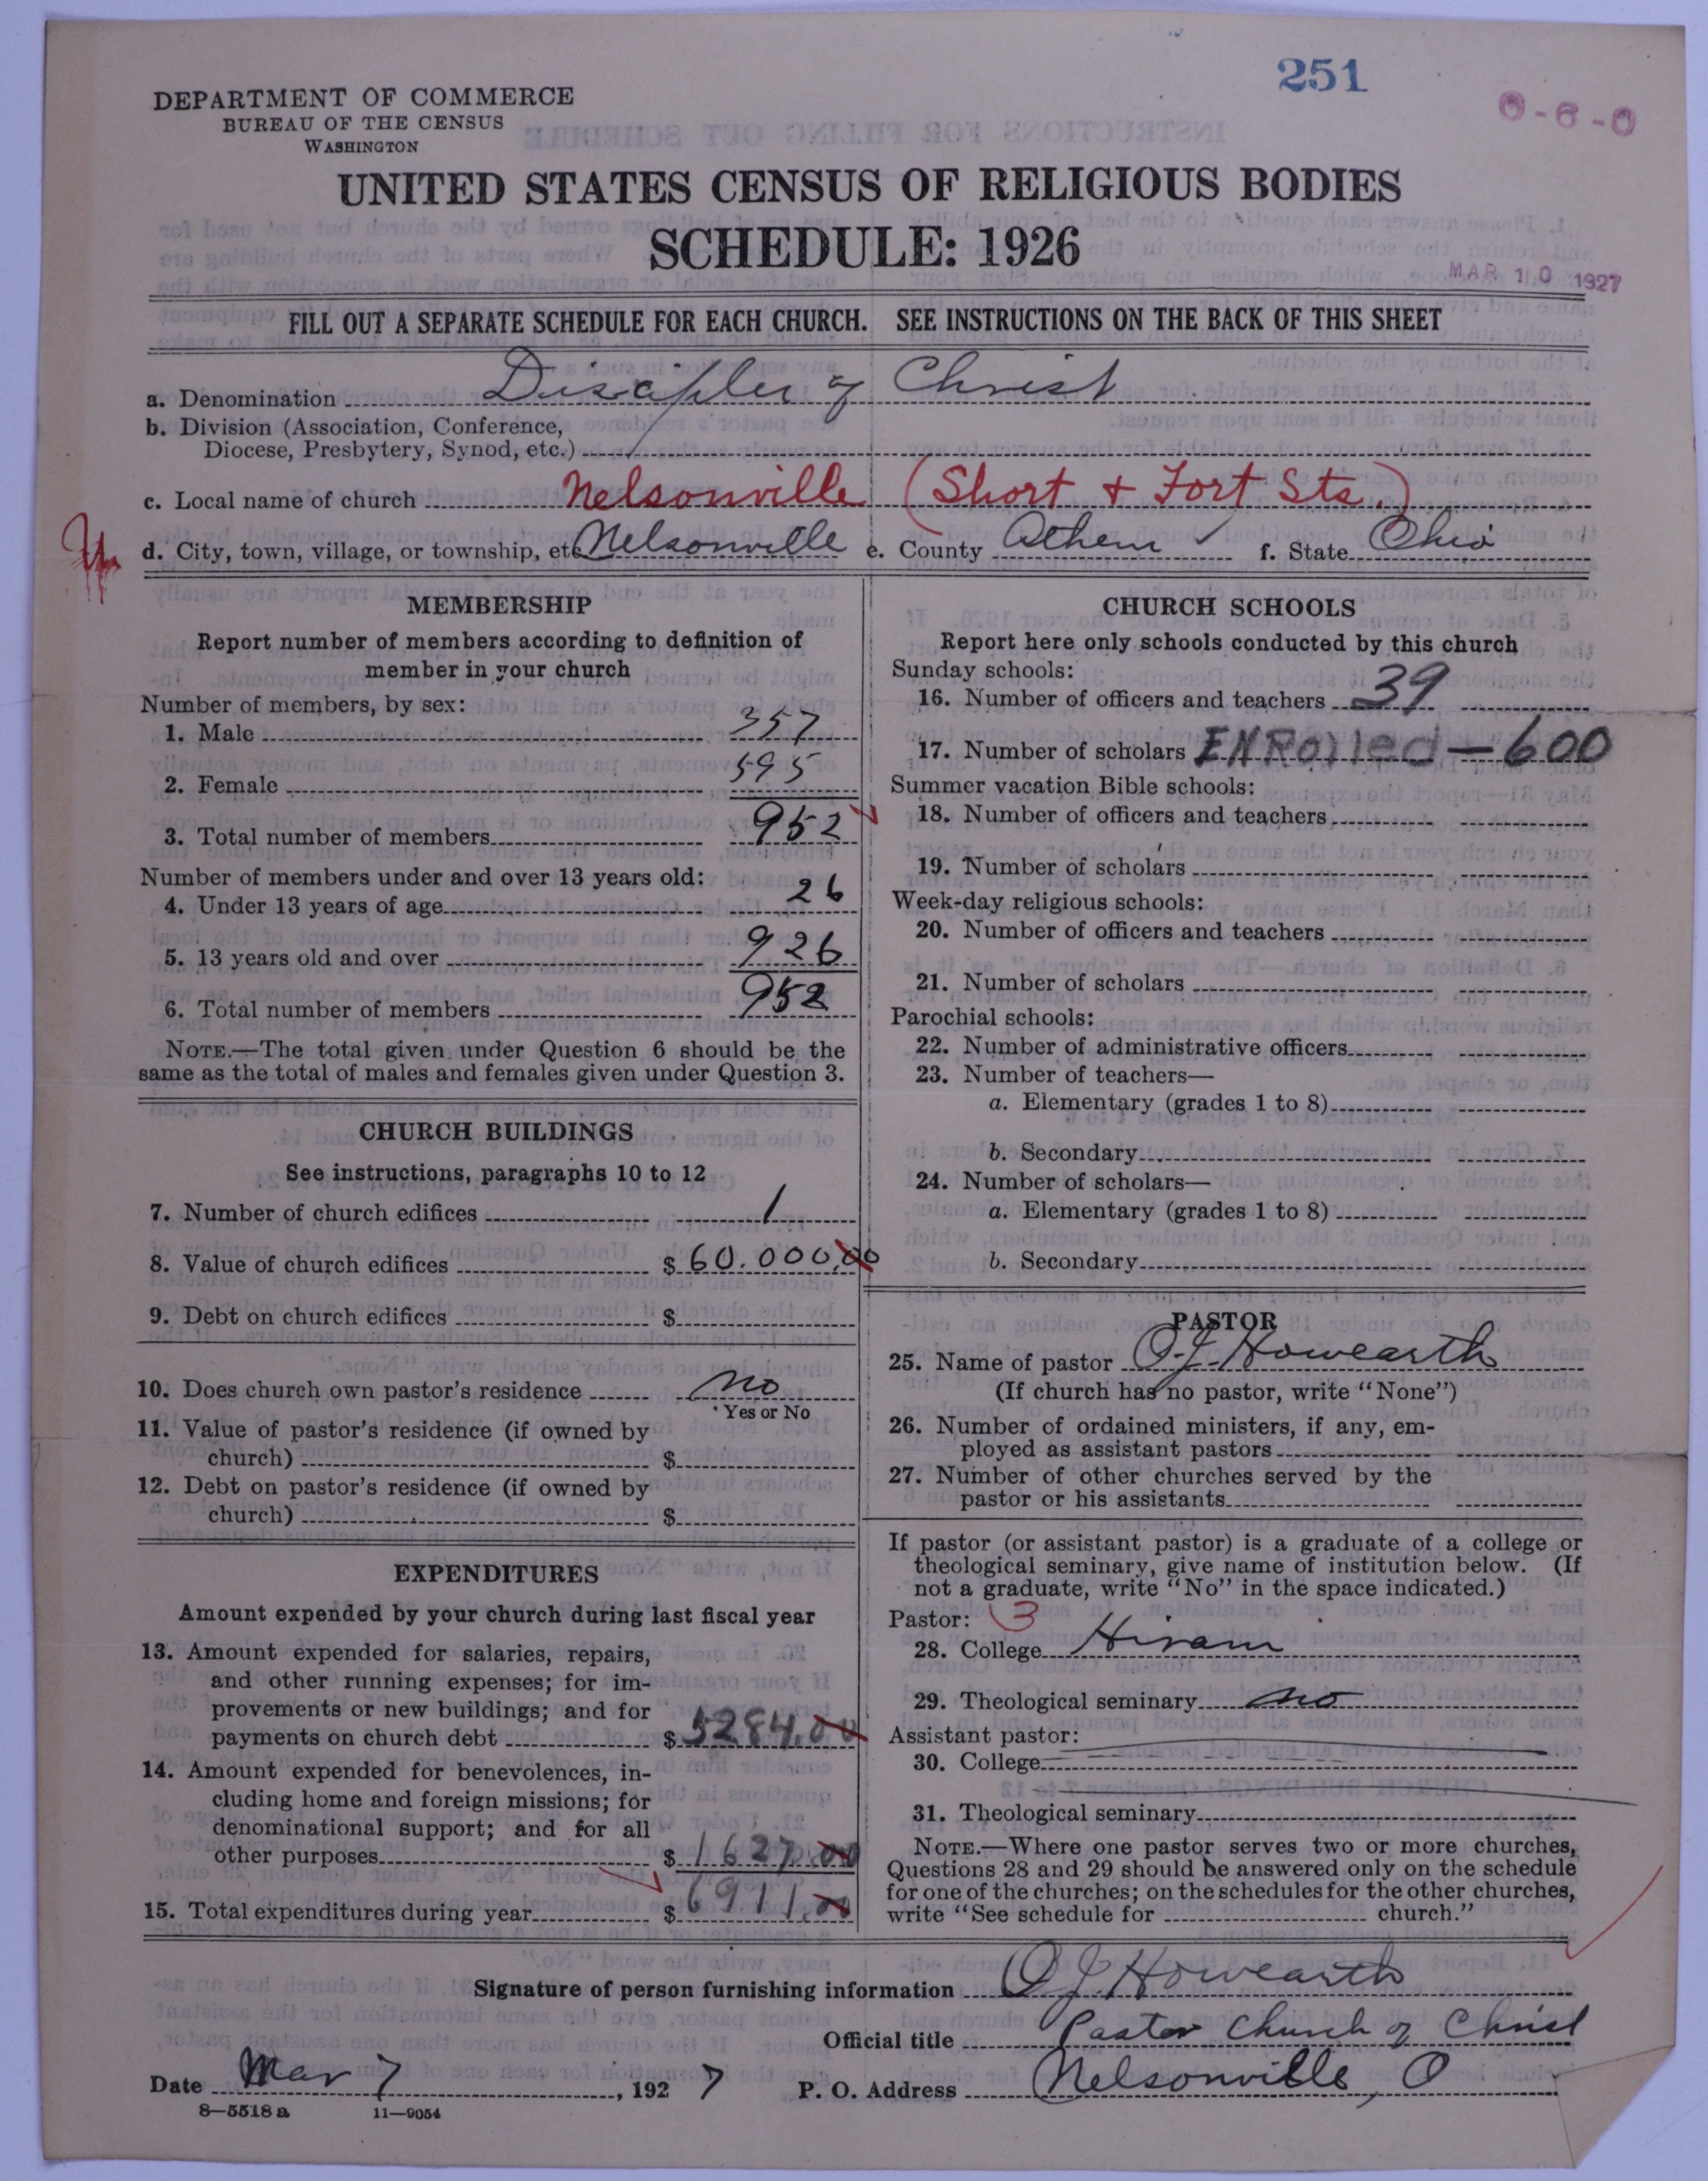 251
0-6-0
DEPARTMENT OF COMMERCE
BUREAU OF THE CENSUS
WASHINGTON
UNITED STATES CENSUS OF RELIGIOUS BODIES
SCHEDULE: 1926
MAR 10 1927
FILL OUT A SEPARATE SCHEDULE FOR EACH CHURCH. SEE INSTRUCTIONS ON THE BACK OF THIS SHEET
a. Denomination Disciples of Christ
b. Division (Association, Conference,
Diocese, Presbytery, Synod, etc.)
c. Local name of church Nelsonville (Short + Fort Sts.)
d. City, town, village, or township, etc Nelsonville e. County Athens f. State Ohio
MEMBERSHIP
Report number of members according to definition of
member in your church
Number of members, by sex:
1. Male 357
2. Female 595
3. Total number of members 952
Number of members under and over 13 years old:
4. Under 13 years of age 26
5. 13 years old and over 926
6. Total number of members 952
NOTE.—The total given under Question 6 should be the
same as the total of males and females given under Question 3.
CHURCH BUILDINGS
See instructions, paragraphs 10 to 12
7. Number of church edifices 1
8. Value of church edifices $ 60.000.00
9. Debt on church edifices $
10. Does church own pastor's residence no
Yes or No
11. Value of pastor's residence (if owned by
church) $
12. Debt on pastor's residence (if owned by
church) $
EXPENDITURES
Amount expended by your church during last fiscal year
13. Amount expended for salaries, repairs,
and other running expenses; for im-
provements or new buildings; and for
payments on church debt $ 5284.00
14. Amount expended for benevolences, in-
cluding home and foreign missions; for
denominational support; and for all
other purposes $ 1627.00
15. Total expenditures during year $ 6911.00
CHURCH SCHOOLS
Report here only schools conducted by this church
Sunday schools:
16. Number of officers and teachers 39
17. Number of scholars ENRolled—600
Summer vacation Bible schools:
18. Number of officers and teachers
19. Number of scholars
Week-day religious schools:
20. Number of officers and teachers
21. Number of scholars
Parochial schools:
22. Number of administrative officers
23. Number of teachers—
a. Elementary (grades 1 to 8)
b. Secondary
24. Number of scholars—
a. Elementary (grades 1 to 8)
b. Secondary
PASTOR
25. Name of pastor O.J. Howearth
(If church has no pastor, write "None")
26. Number of ordained ministers, if any, em-
ployed as assistant pastors
27. Number of other churches served by the
pastor or his assistants
If pastor (or assistant pastor) is a graduate of a college or
theological seminary, give name of institution below. (If
not a graduate, write "No" in the space indicated.)
Pastor: 3
28. College Hiram
29. Theological seminary no
Assistant pastor:
30. College
31. Theological seminary
NOTE.—Where one pastor serves two or more churches,
Questions 28 and 29 should be answered only on the schedule
for one of the churches; on the schedules for the other churches,
write "See schedule for church."
Signature of person furnishing information O J Howearth
Official title Pastor Church of Christ
Date Mar 7, 1927 P. O. Address Nelsonville, O
8—5518 a 11—9054